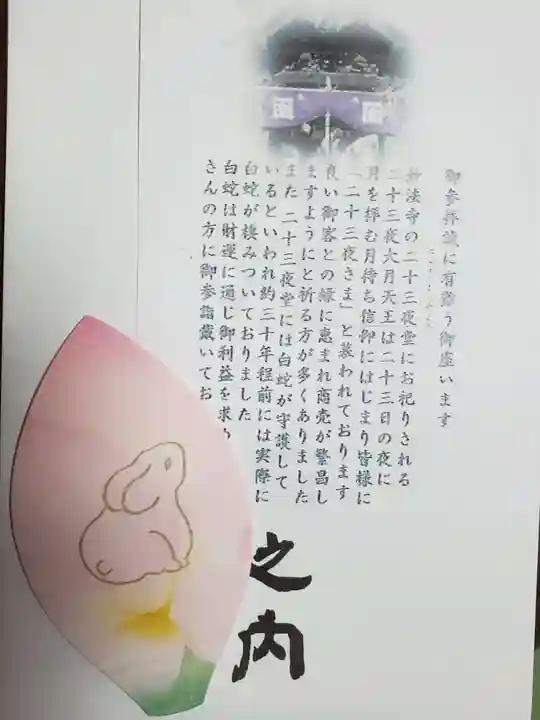 御参拝誠に有難う御座います
妙法寺の二十三夜堂にお祀りされる
二十三夜大月天王は二十三日の夜に
月を拝む月待ち信仰にはじまり皆様に
「二十三夜さま」と慕われております
良い御客との縁に恵まれ商売が繁昌し
ますようにと祈る方が多くありました
また 二十三夜堂には白蛇が守護して
いるといわれ約三十年程前には実際に
白蛇が棲みついておりました
白蛇は財運に通じ御利益を求め
さんの方に御参詣戴いてお
之内